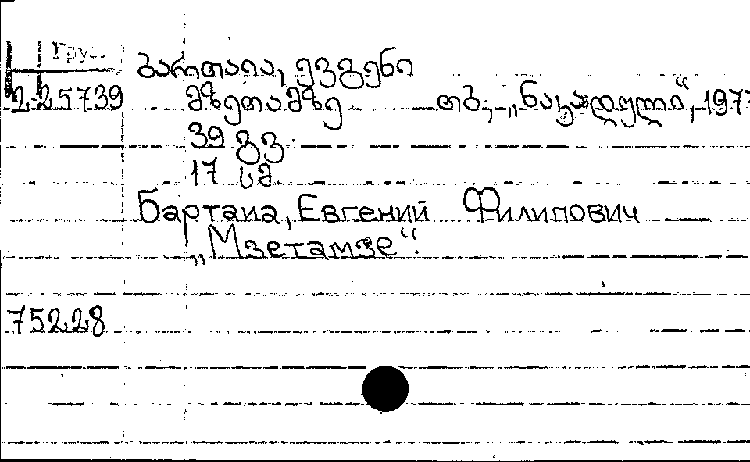 Груз.
ბართაია, ევგენი
2-25739 მზეთამზე თბ., „ნაკადული“, 197
39 გვ.
17 სმ
Бартаиа, Евгений Филипович
„Мзетамзе“.
75228